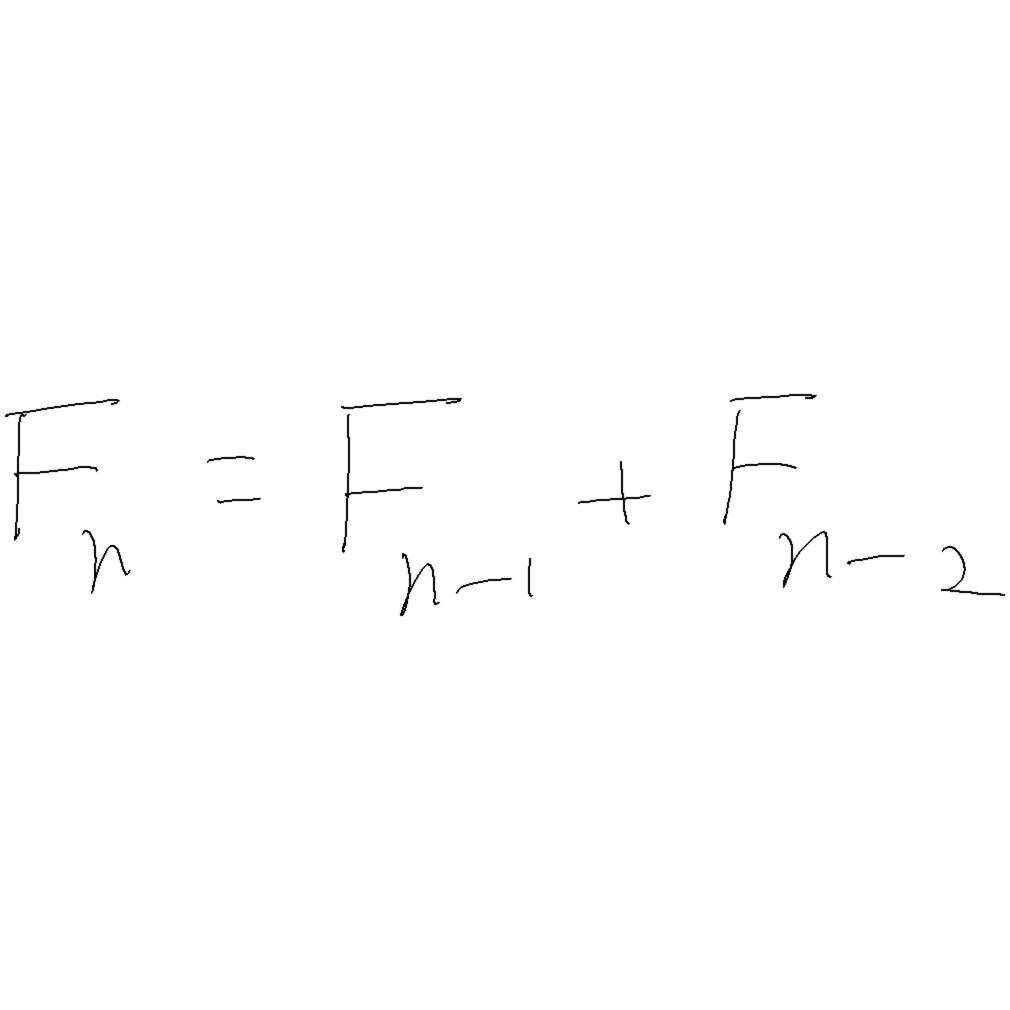 F_n = F_{n-1} + F_{n-2}